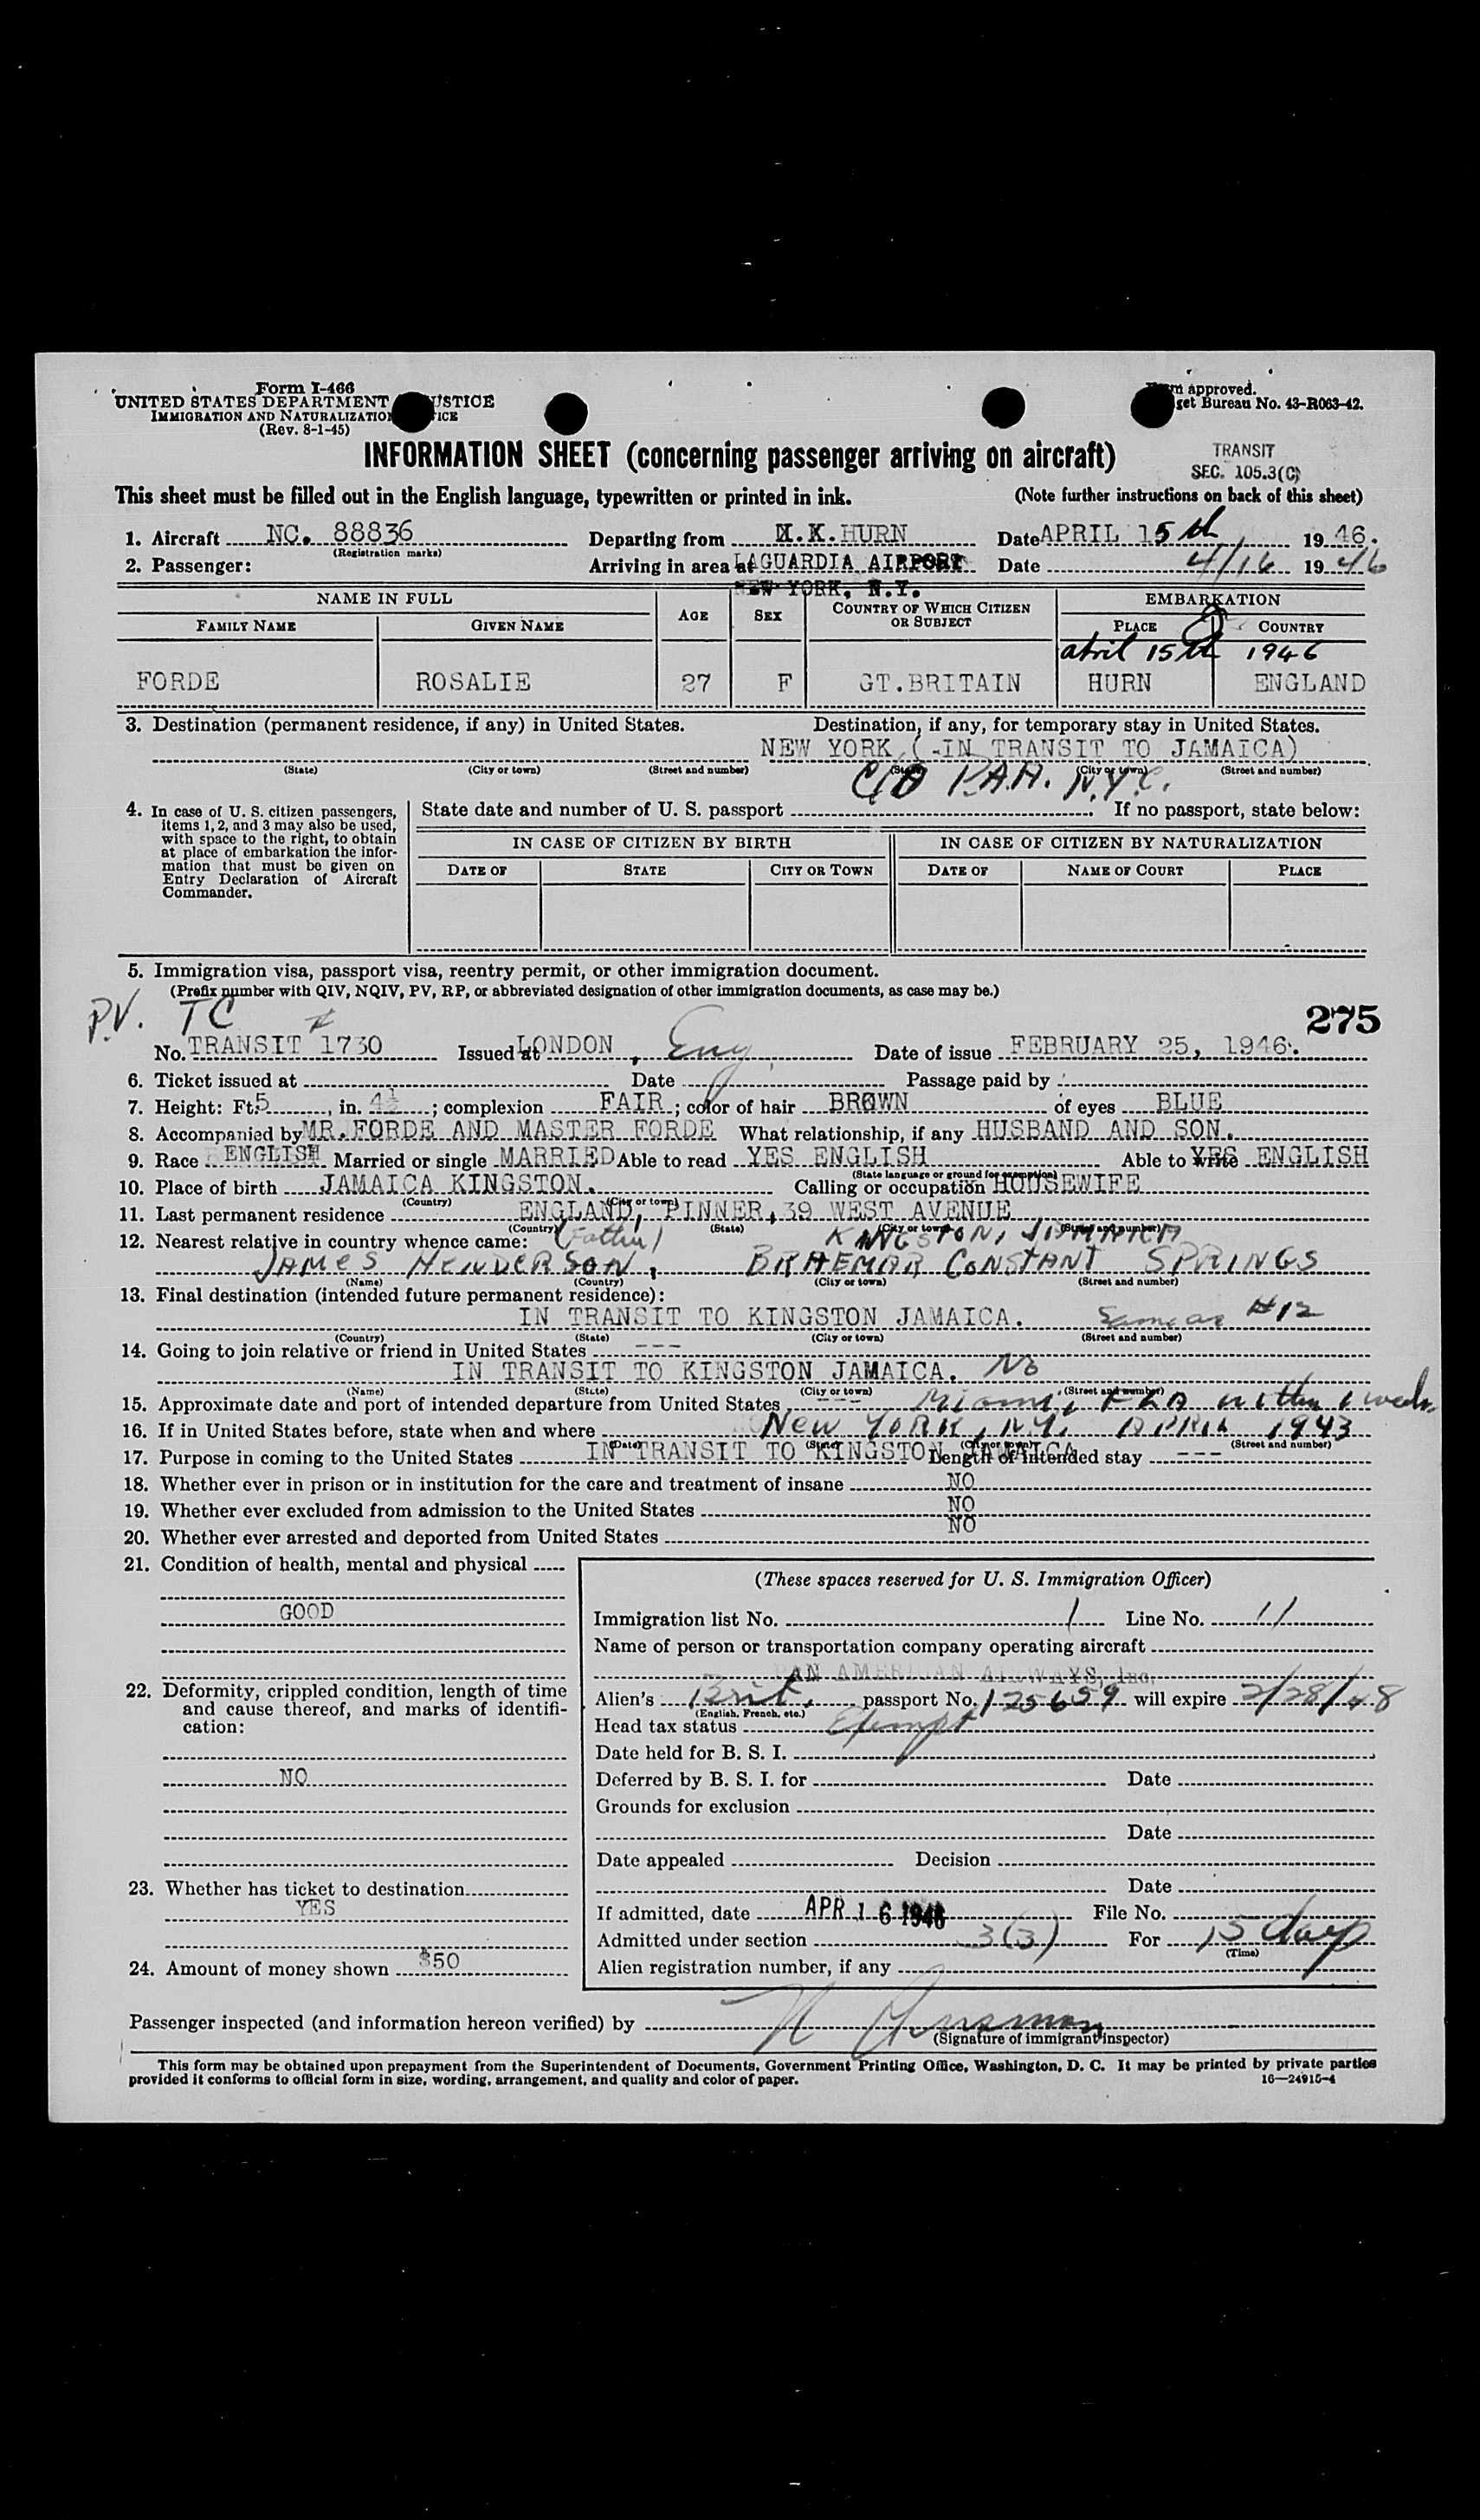 Form I-466
UNITED STATES DEPARTMENT USTICE
IMMIGRATION AND NATURALIZATION ICE
(Rev. 8-1-45)
m approved.
get Bureau No. 43-R063-42.
INFORMATION SHEET (concerning passenger arriving on aircraft)
TRANSIT
SEC. 105.3(C)
This sheet must be filled out in the English language, typewritten or printed in ink. (Note further instructions on back of this sheet)
1. Aircraft NC. 88836 Departing from K. HURN Date APRIL 15th 1946.
(Registration marks)
2. Passenger: Arriving in area at LAGUARDIA AIRPORT Date 4/16 1946
NEW YORK, N.Y.
NAME IN FULL AGE SEX COUNTRY OF WHICH CITIZEN OR SUBJECT EMBARKATION
FAMILY NAME GIVEN NAME PLACE COUNTRY
april 15th 1946
FORDE ROSALIE 27 F GT.BRITAIN HURN ENGLAND
3. Destination (permanent residence, if any) in United States. Destination, if any, for temporary stay in United States.
NEW YORK (-IN TRANSIT TO JAMAICA)
(State) (City or town) (Street and number) (State) (City or town) (Street and number)
C/O P.A.A. N.Y.C.
4. In case of U. S. citizen passengers, items 1, 2, and 3 may also be used, with space to the right, to obtain at place of embarkation the information that must be given on Entry Declaration of Aircraft Commander.
State date and number of U. S. passport If no passport, state below:
IN CASE OF CITIZEN BY BIRTH IN CASE OF CITIZEN BY NATURALIZATION
DATE OF STATE CITY OR TOWN DATE OF NAME OF COURT PLACE
5. Immigration visa, passport visa, reentry permit, or other immigration document.
(Prefix number with QIV, NQIV, PV, RP, or abbreviated designation of other immigration documents, as case may be.)
P.V. TC # 275
No. TRANSIT 1730 Issued at LONDON, Eng. Date of issue FEBRUARY 25, 1946.
6. Ticket issued at Date Passage paid by
7. Height: Ft. 5, in. 4½; complexion FAIR; color of hair BROWN of eyes BLUE
8. Accompanied by MR. FORDE AND MASTER FORDE What relationship, if any HUSBAND AND SON.
9. Race ENGLISH Married or single MARRIED Able to read YES ENGLISH Able to write YES ENGLISH
(State language or ground for exemption)
10. Place of birth JAMAICA KINGSTON. Calling or occupation HOUSEWIFE
(Country) (City or town)
11. Last permanent residence ENGLAND, PINNER, 39 WEST AVENUE
(Country) (State) (City or town) (Street and number)
12. Nearest relative in country whence came: (Father) KINGSTON, JAMAICA
JAMES HENDERSON, BRAEMAR CONSTANT SPRINGS
(Name) (Country) (City or town) (Street and number)
13. Final destination (intended future permanent residence):
IN TRANSIT TO KINGSTON JAMAICA. Same as #12
(Country) (State) (City or town) (Street and number)
14. Going to join relative or friend in United States ---
IN TRANSIT TO KINGSTON JAMAICA. No
(Name) (State) (City or town) (Street and number)
15. Approximate date and port of intended departure from United States --- Miami, FLA within 1 week.
16. If in United States before, state when and where NEW YORK, NY. APRIL 1943
(Date) (State) (City or town) (Street and number)
17. Purpose in coming to the United States IN TRANSIT TO KINGSTON JAMAICA Length of intended stay ---
18. Whether ever in prison or in institution for the care and treatment of insane NO
19. Whether ever excluded from admission to the United States NO
20. Whether ever arrested and deported from United States NO
21. Condition of health, mental and physical
GOOD
22. Deformity, crippled condition, length of time and cause thereof, and marks of identification:
NO
23. Whether has ticket to destination
YES
24. Amount of money shown $50
(These spaces reserved for U. S. Immigration Officer)
Immigration list No. 1 Line No. 11
Name of person or transportation company operating aircraft
PAN AMERICAN AIRWAYS, Inc.
Alien's Brit. passport No. 125659 will expire 2/28/48
(English, French, etc.)
Head tax status Exempt
Date held for B. S. I.
Deferred by B. S. I. for Date
Grounds for exclusion
Date
Date appealed Decision
Date
If admitted, date APR 16 1946 File No.
Admitted under section 3(3) For 15 days
(Time)
Alien registration number, if any
Passenger inspected (and information hereon verified) by
(Signature of immigrant inspector)
This form may be obtained upon prepayment from the Superintendent of Documents, Government Printing Office, Washington, D. C. It may be printed by private parties
provided it conforms to official form in size, wording, arrangement, and quality and color of paper. 16—24915-4